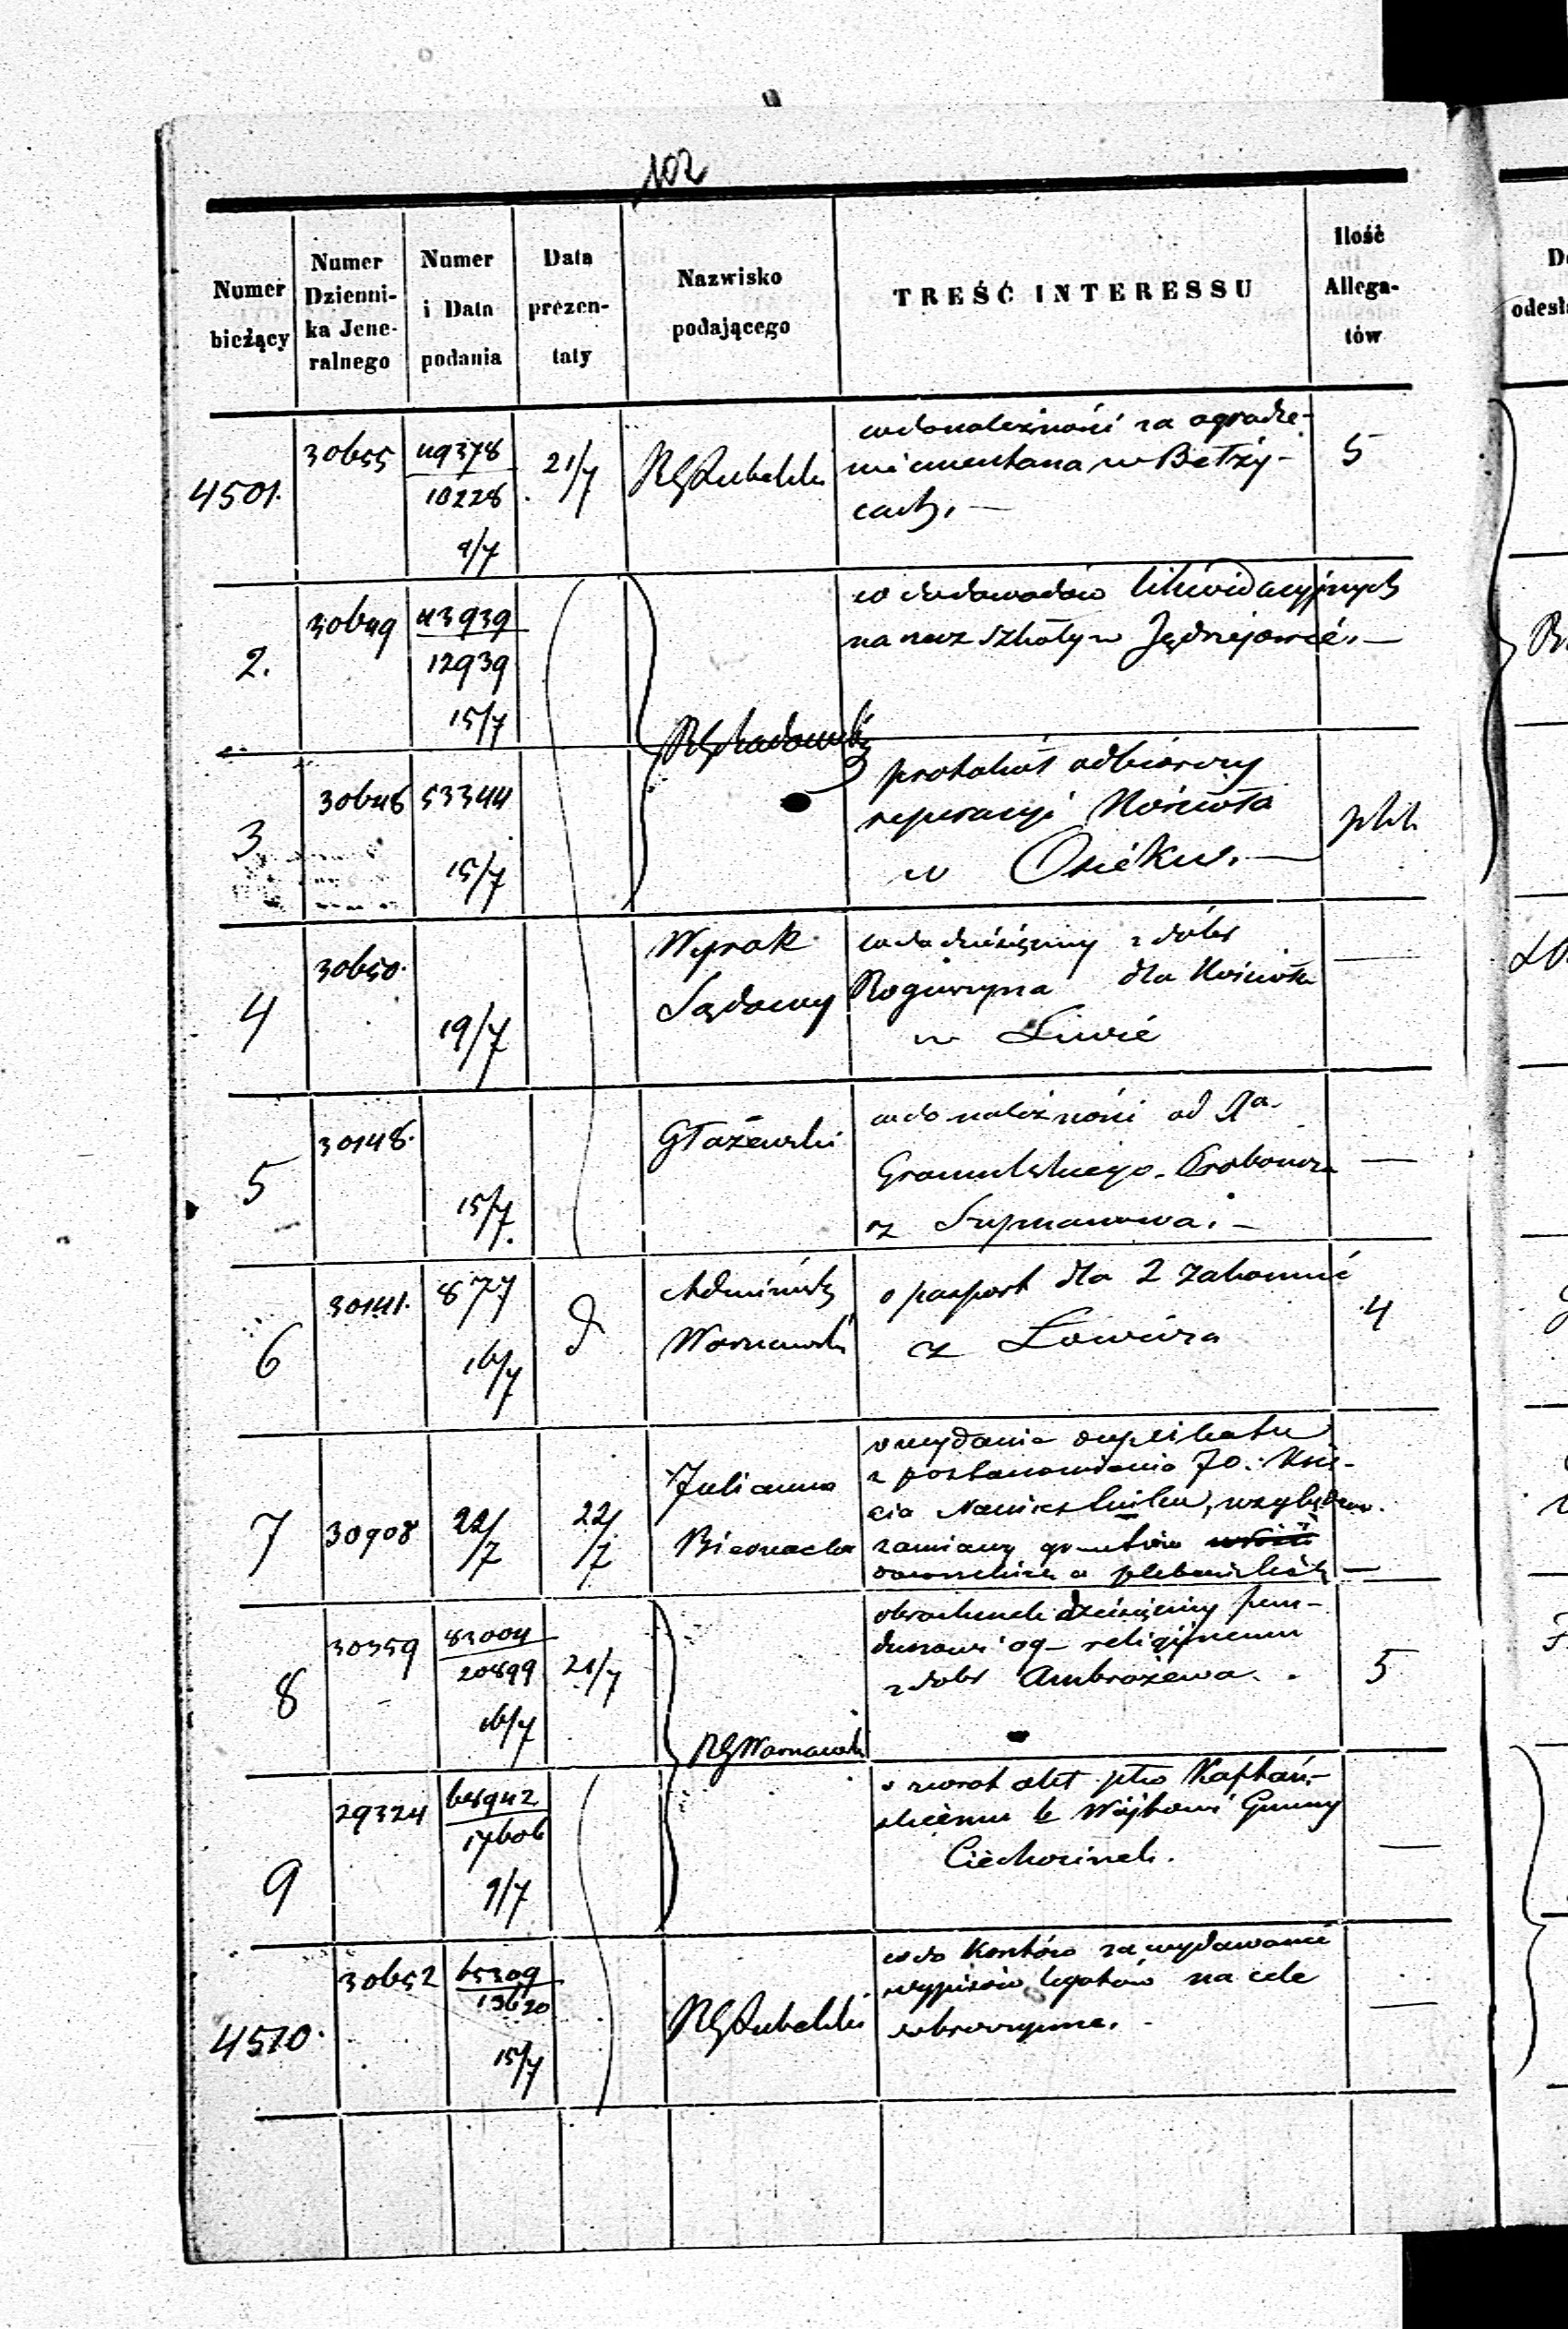 102
Numer bieżący
Numer Dzienni- ka Jene- ralnego
Numer i Data podania
Data prezen- taty
Nazwisko podającego
TREŚĆ INTERESSU
Ilość Allega- tów
4501.
30655
49378
10228
9/7
21/7
RG Lubelski
co do należności za ogrodze-
nie cmentarza w Bełży-
cach. —
5
2.
30649
43939
12939
15/7
co do dowodów likwidacyjnych
na rzecz szkoły w Jędrzejowie. —
RG Radomski
3
30648
53344
15/7
protokół odbiorczy
reperacyi Kościoła
w Osieku. —
plik
4
30650.
19/7
Wyrok
Sądowy
co do dziesięciny z dóbr
dla Kościoła
w Liwie
—
5
30148.
15/7.
Głażewski
co do należności od Xa.
Proboszcza
z
—
6
30141.
877
16/7
Administr
Warszawski
o paszport dla 2 zakonnic
z Łowicza
4
7
30908
22/7
22/7
Julianna
Biernacka
o wydanie duplikatu
z postanowienia JO. Księ-
cia Namiestnika, względem
zamiany gruntów
5
8
30359
83004
20899
16/7
21/7
obrachunek dziesięciny fun-
duszowi og– religijnemu
z dóbr Ambrożewa.
RG Warszawski
9
29324
68942
17606
9/7
o zwrot
Wójtowi Gminy
Ciechocinek.
—
4510.
30652
65309
13620
15/7
RG Lubelski
co do Kosztów za wydawanie
wypisów legatów na cele
dobroczynne.
—
De
odesł